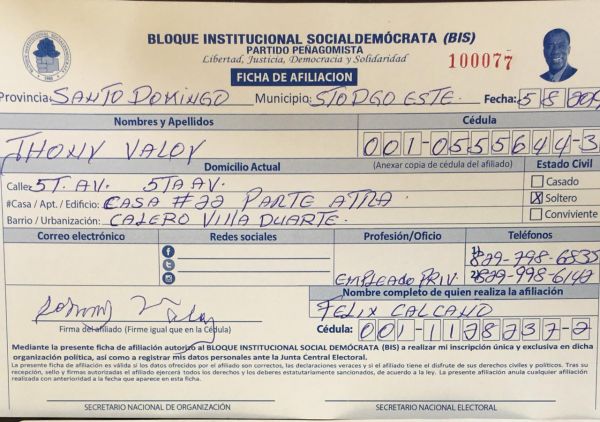 BLOQUE INSTITUCIONAL SOCIALDEMÓCRATA (BIS)
PARTIDO PEÑAGOMISTA
Libertad, Justicia, Democracia y Solidaridad
100077
FICHA DE AFILIACION
Provincia: SANTO DOMINGO Municipio: STODGO ESTE. Fecha: 5 8
Nombres y Apellidos Cédula
JHONY VALOY 001-0555644-3
Domicilio Actual (Anexar copia de cédula del afiliado) Estado Civil
Calle: 5T. AV. 5TA AV. Casado
#Casa / Apt. / Edificio: CASA #22 PARTE ATRA X Soltero
Barrio / Urbanización: CALERO VILLA DUARTE. Conviviente
Correo electrónico Redes sociales Profesión/Oficio Teléfonos
1) 829-798-6535
EMPLEADO PRIV. 2) 829-998-6142
Nombre completo de quien realiza la afiliación
FELIX CALCAÑO
Firma del afiliado (Firme igual que en la Cédula) Cédula: 001-1178237-2
Mediante la presente ficha de afiliación autorizo al BLOQUE INSTITUCIONAL SOCIAL DEMÓCRATA (BIS) a realizar mi inscripción única y exclusiva en dicha
organización política, así como a registrar mis datos personales ante la Junta Central Electoral.
La presente ficha de afiliación es válida si los datos ofrecidos por el afiliado son correctos, las declaraciones veraces y si el afiliado tiene el disfrute de sus derechos civiles y políticos. Tras su
recepción, sello y firmas autorizadas el afiliado ejercerá todos los derechos y los deberes estatutariamente sancionados, de acuerdo a la ley. La presente afiliación anula cualquier afiliación
realizada con anterioridad a la fecha que aparece en esta ficha.
SECRETARIO NACIONAL DE ORGANIZACIÓN SECRETARIO NACIONAL ELECTORAL